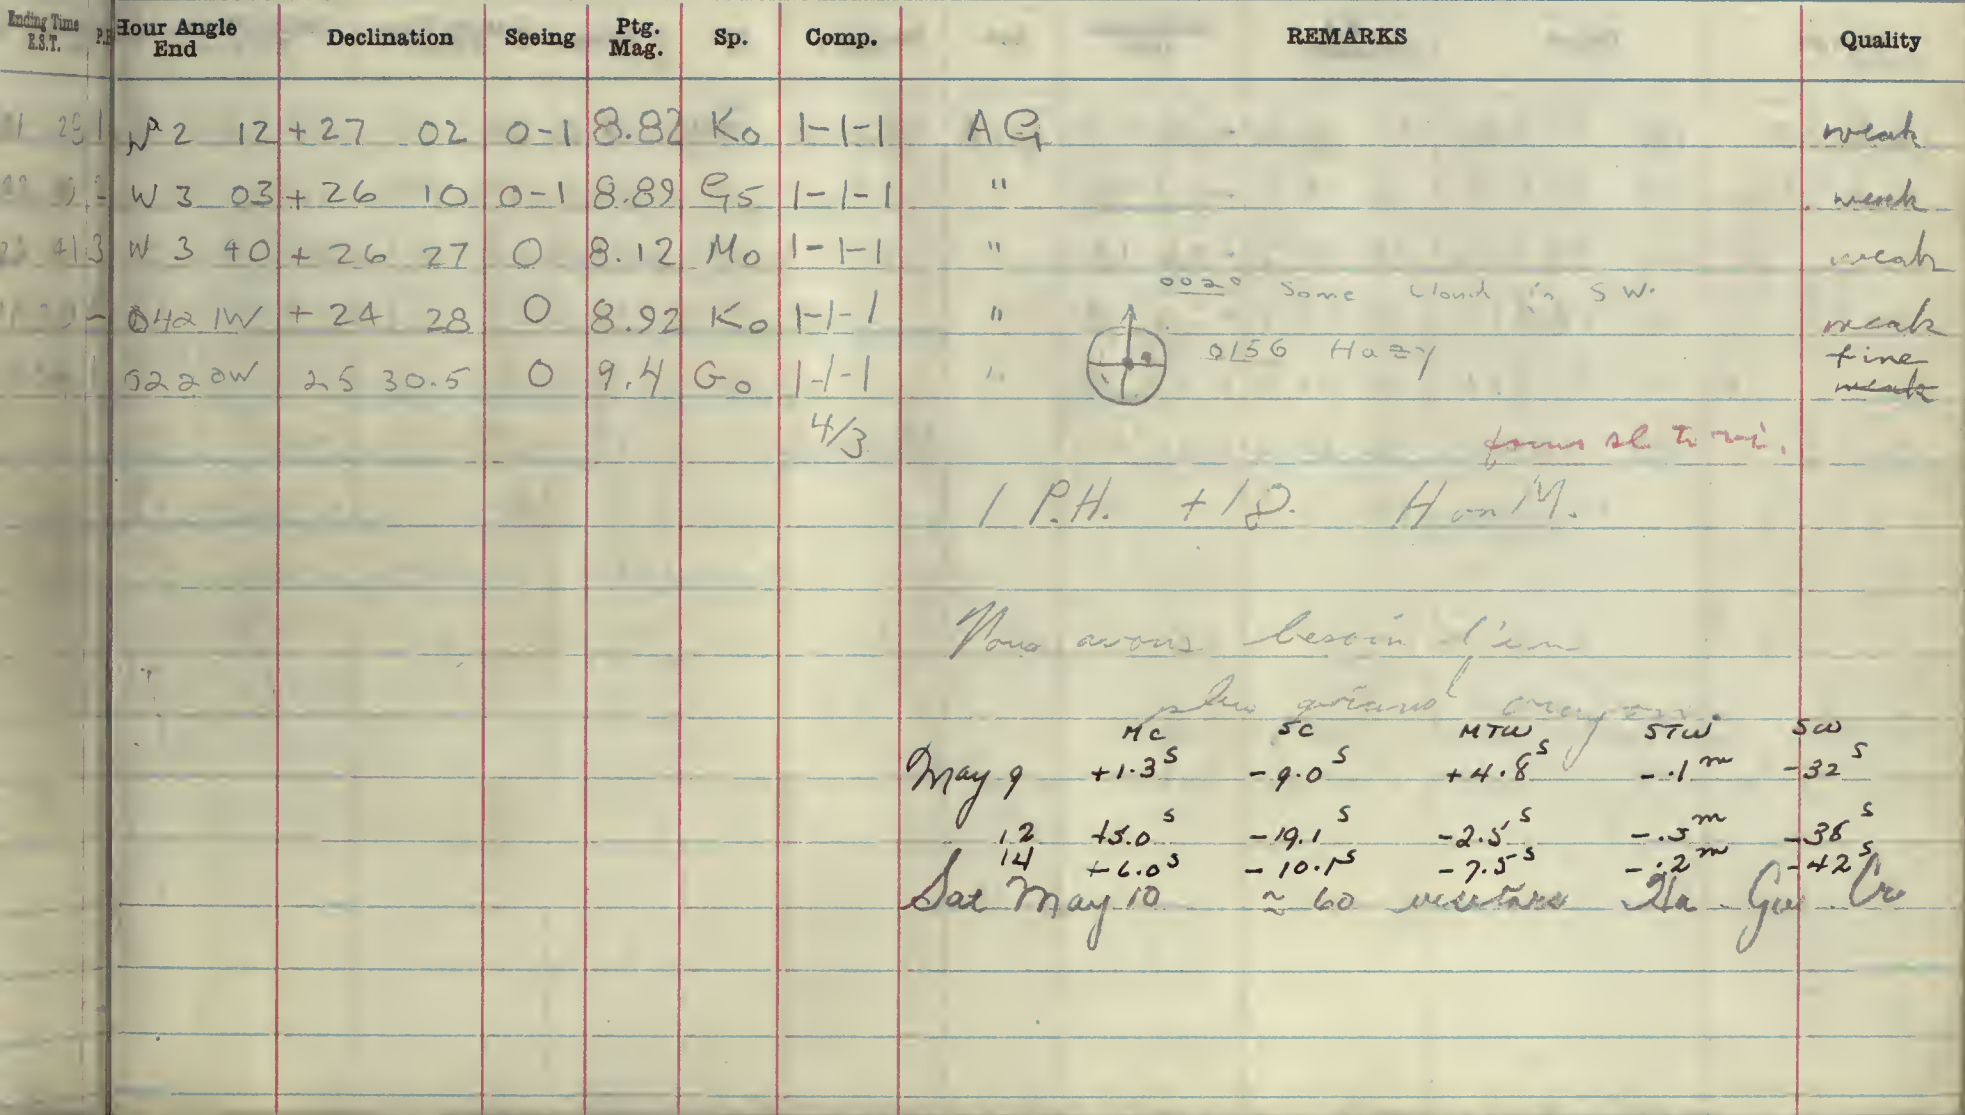 Ending Time E.S.T. Hour Angle End Declination Seeing Ptg. Mag. Sp. Comp. REMARKS Quality
W 2 12 +27 02 0-1 8.82 K0 1-1-1 AG weak
W 3 03 +26 10 0-1 8.89 G5 1-1-1 " weak
W 3 40 +26 27 0 8.12 M0 1-1-1 " weak
0020 Some cloud in SW.
0421W +24 28 0 8.92 K0 1-1-1 " weak
0156 Hazy fine
0522 0W 25 30.5 0 9.4 G0 1-1-1 " weak
4/3
focus sl to
1 P.H. +18. H on M.
Nous avons besoin d'un
plus grand crayon.
MC SC MTW STW SW
May 9 +1.3s -9.0s +4.8s -.1m -32s
12 +5.0s -19.1s -2.5s -.5m -38s
14 +6.0s -10.1s -7.5s -.2m -42s
Sat May 10 ≈ 60 visitors Ha